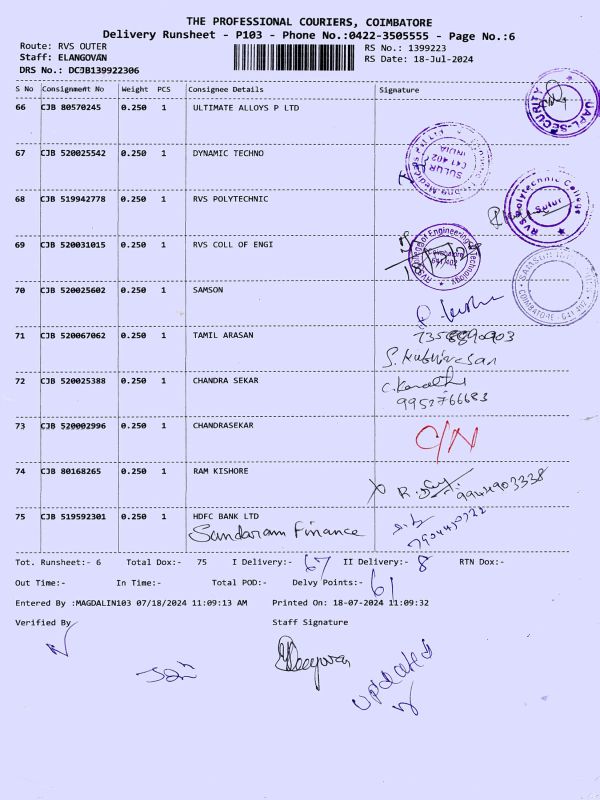 THE PROFESSIONAL COURIERS, COIMBATORE
Delivery Runsheet - P103 - Phone No.:0422-3505555 - Page No.:6
Route: RVS OUTER RS No.: 1399223
Staff: ELANGOVAN RS Date: 18-Jul-2024
DRS No.: DCJB139922306
S No Consignment No Weight PCS Consignee Details Signature
66 CJB 80570245 0.250 1 ULTIMATE ALLOYS P LTD
UAPL-SECURITY
67 CJB 520025542 0.250 1 DYNAMIC TECHNO
SULUR
641 402
INDIA
68 CJB 519942778 0.250 1 RVS POLYTECHNIC
RVS Polytechnic College
Sulur
69 CJB 520031015 0.250 1 RVS COLL OF ENGI
RVS College of Engineering Technology
Coimbatore
641 402
70 CJB 520025602 0.250 1 SAMSON
SAMSON
COIMBATORE - 641 402
71 CJB 520067062 0.250 1 TAMIL ARASAN
72 CJB 520025388 0.250 1 CHANDRA SEKAR
9952766683
73 CJB 520002996 0.250 1 CHANDRASEKAR
C/N
74 CJB 80168265 0.250 1 RAM KISHORE
9944903338
75 CJB 519592301 0.250 1 HDFC BANK LTD
Sundaram Finance
Tot. Runsheet:- 6 Total Dox:- 75 I Delivery:- 67 II Delivery:- 8 RTN Dox:-
Out Time:- In Time:- Total POD:- Delvy Points:- 61
Entered By :MAGDALIN103 07/18/2024 11:09:13 AM Printed On: 18-07-2024 11:09:32
Verified By Staff Signature
updated